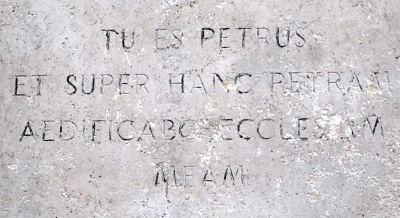 TU ES PETRUS
ET SUPER HANC PETRAM
AEDIFICABO ECCLESIAM
MEAM